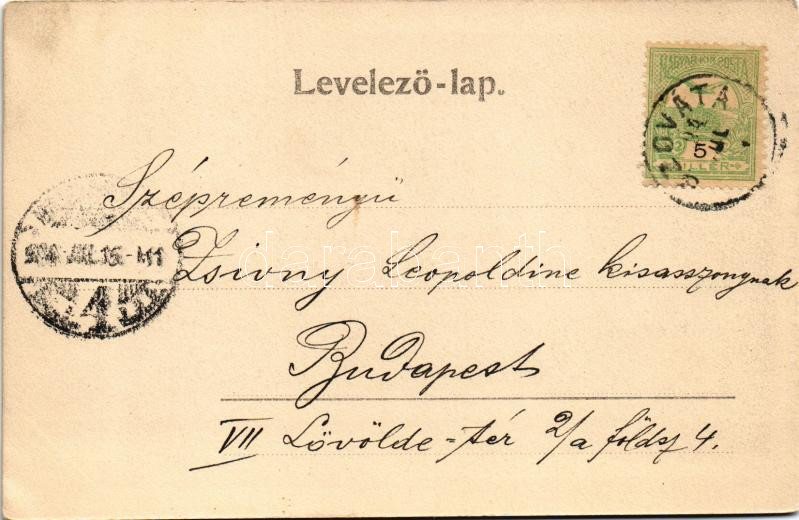 Levelező-lap.
MAGYAR KIR. POSTA
SZOVÁTA
5
FILLÉR
Szépreményű
Zsivny Leopoldine kisasszonynak
Budapest
VII Lövölde-tér 2/a földsz 4.
4
darabanth